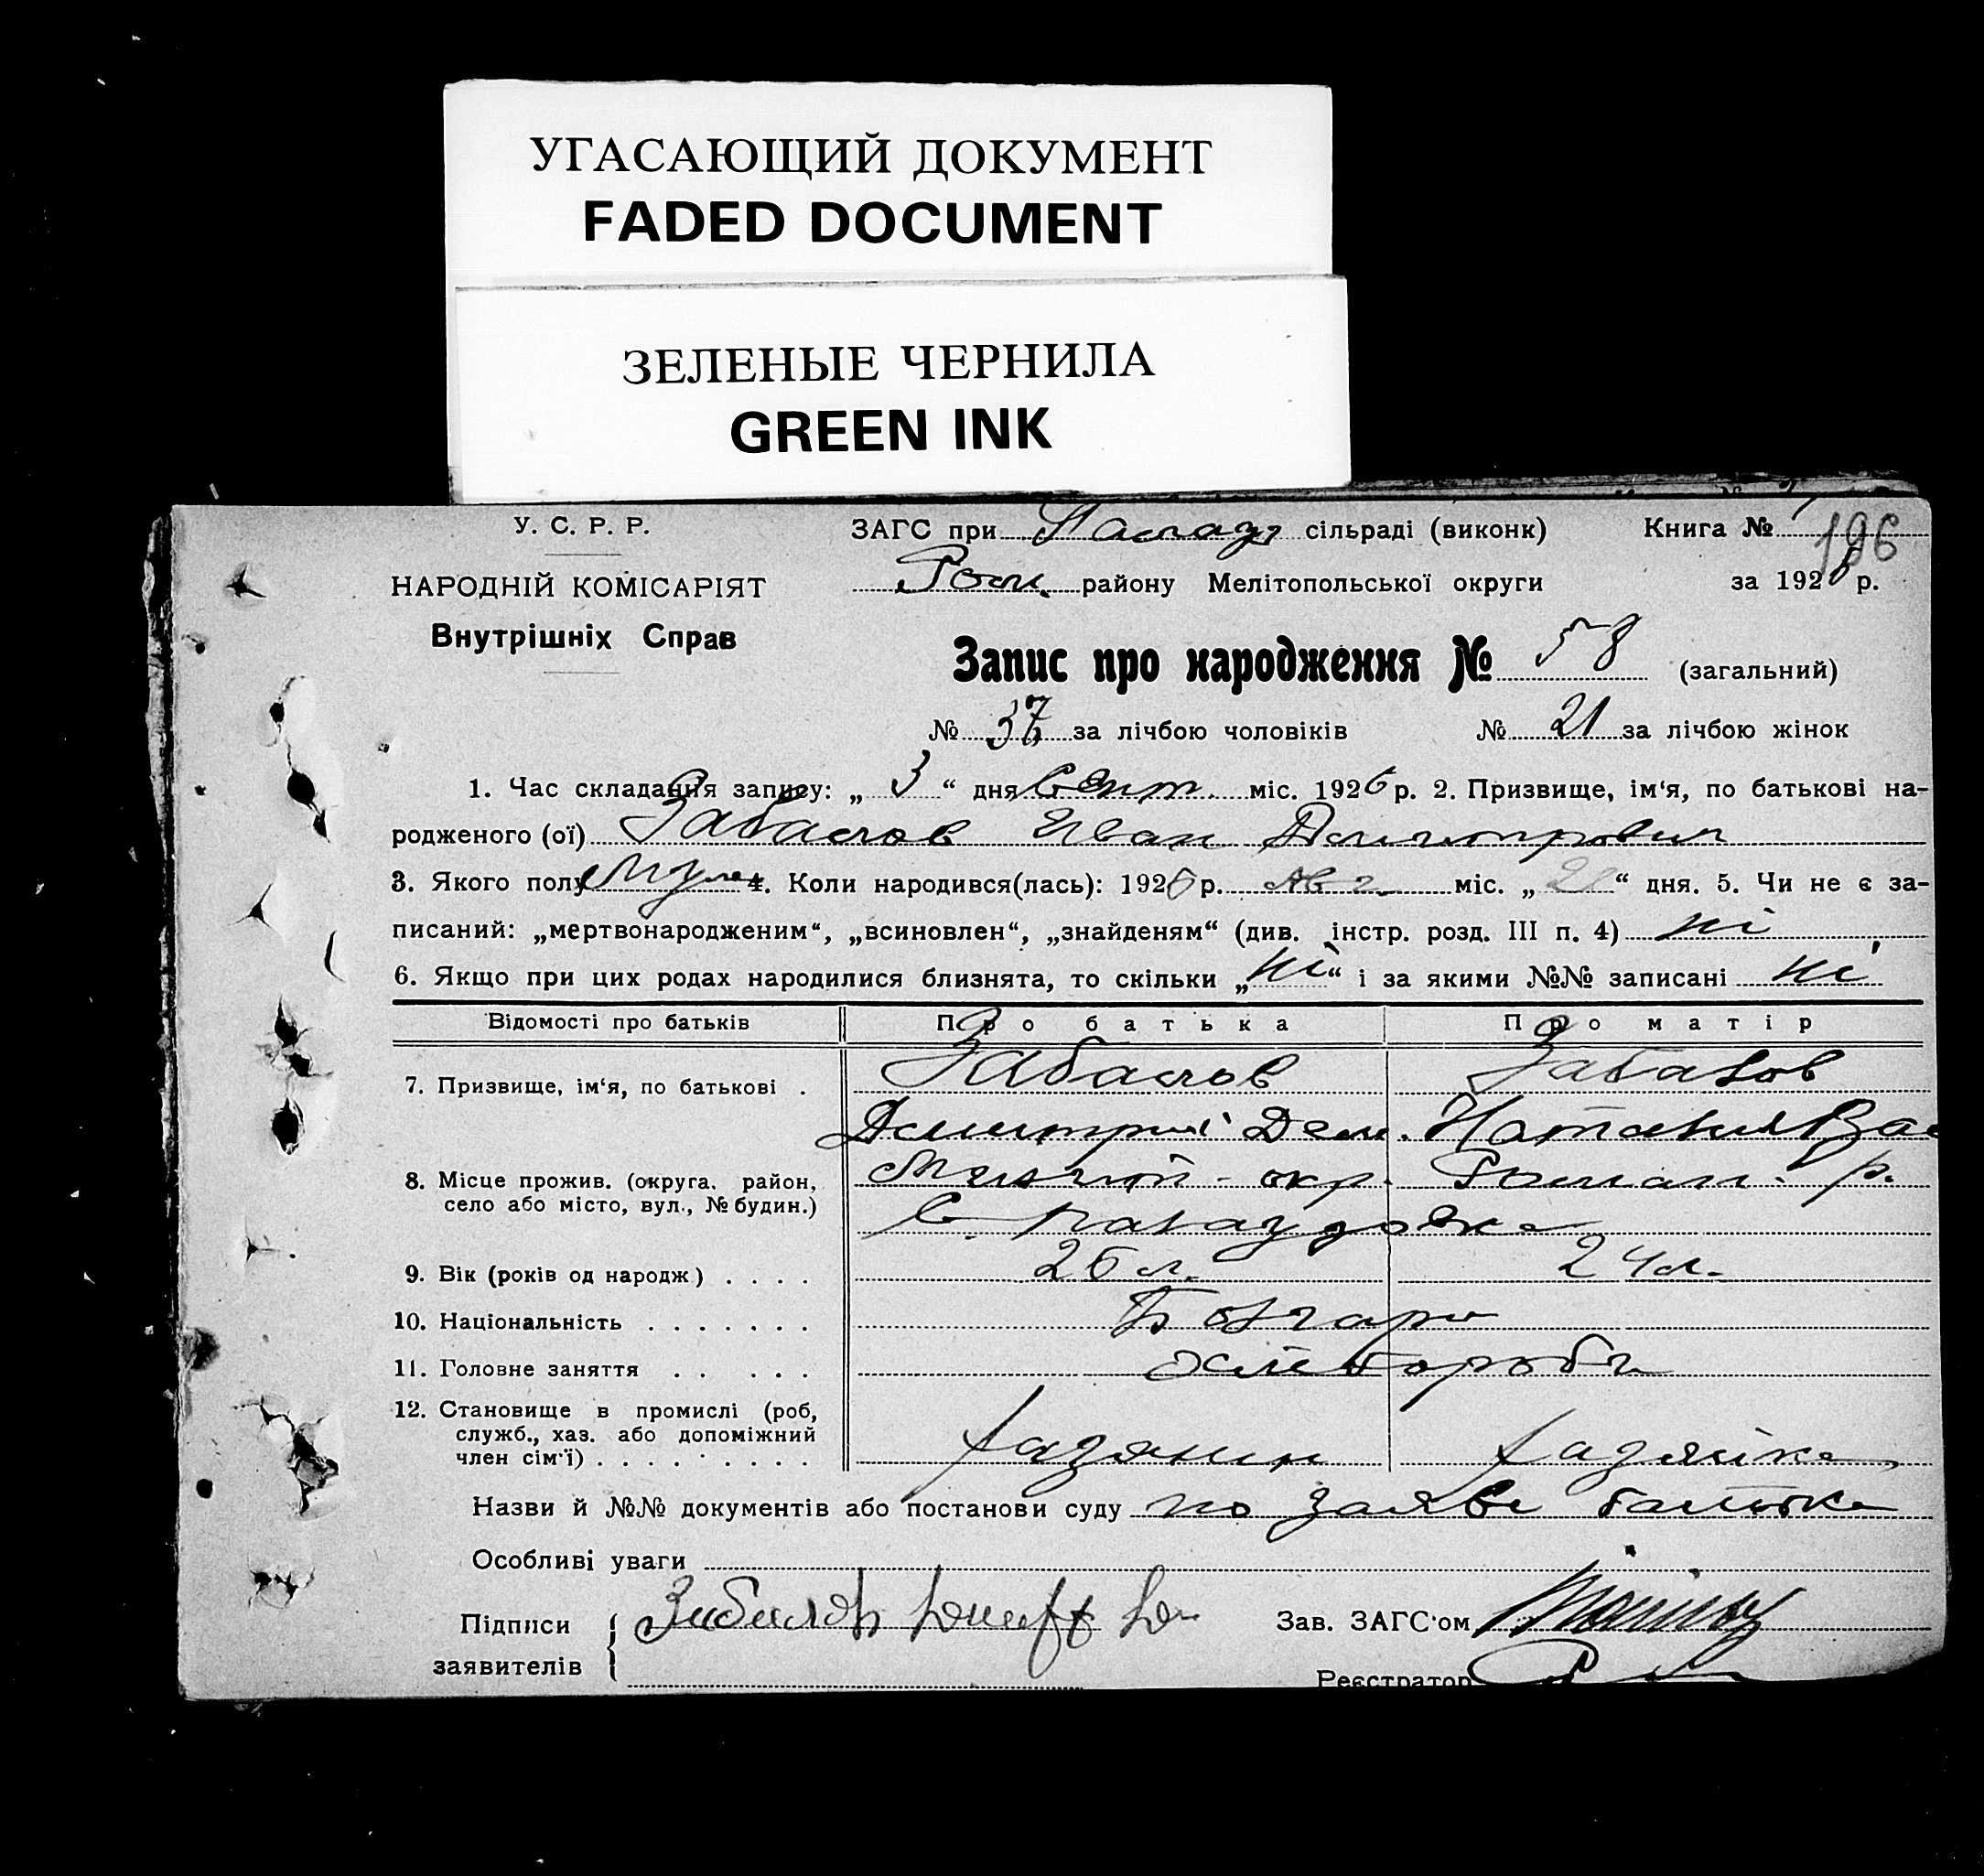 УГАСАЮЩИЙ ДОКУМЕНТ
FADED DOCUMENT
ЗЕЛЕНЫЕ ЧЕРНИЛА
GREEN INK
У. С. Р. Р.
ЗАГС при сільраді (виконк) Книга № 196
НАРОДНІЙ КОМІСАРІЯТ
району Мелітопольської округи за 1926 р.
Внутрішніх Справ
Запис про народження № 58 (загальний)
№ 37 за лічбою чоловіків № 21 за лічбою жінок
1. Час складання запису: „ 3 “ дня Сент. міс. 1926 р. 2. Призвище, ім‘я, по батькові на-
родженого (ої) Забалов Иван Дмитрович
3. Якого полу Муж. 4. Коли народився(лась): 1926 р. Авг. міс. „ 21 “ дня. 5. Чи не є за-
писаний: „мертвонародженим“, „всиновлен“, „знайденям“ (див. інстр. розд. III п. 4) ні
6. Якщо при цих родах народилися близнята, то скільки „ ні “ і за якими №№ записані ні
Відомості про батьків Про батька Про матір
7. Призвище, ім‘я, по батькові . Забалов Забалов
Дмитрий Дем. Наталия Вас
8. Місце прожив. (округа, район, село або місто, вул., № будин.) окр. Роман. р.
с.
9. Вік (років од народж) . . . . 26 л. 24 л.
10. Національність . . . . . . . Болгари
11. Головне заняття . . . . . хлебороби
12. Становище в промислі (роб, служб., хаз. або допоміжний член сім‘ї) . . . . . . . . . хазянин хазяйка
Назви й №№ документів або постанови суду по заяве батька
Особливі уваги
Підписи заявителів Забалов Дмит
Зав. ЗАГС‘ом
Реєстратор